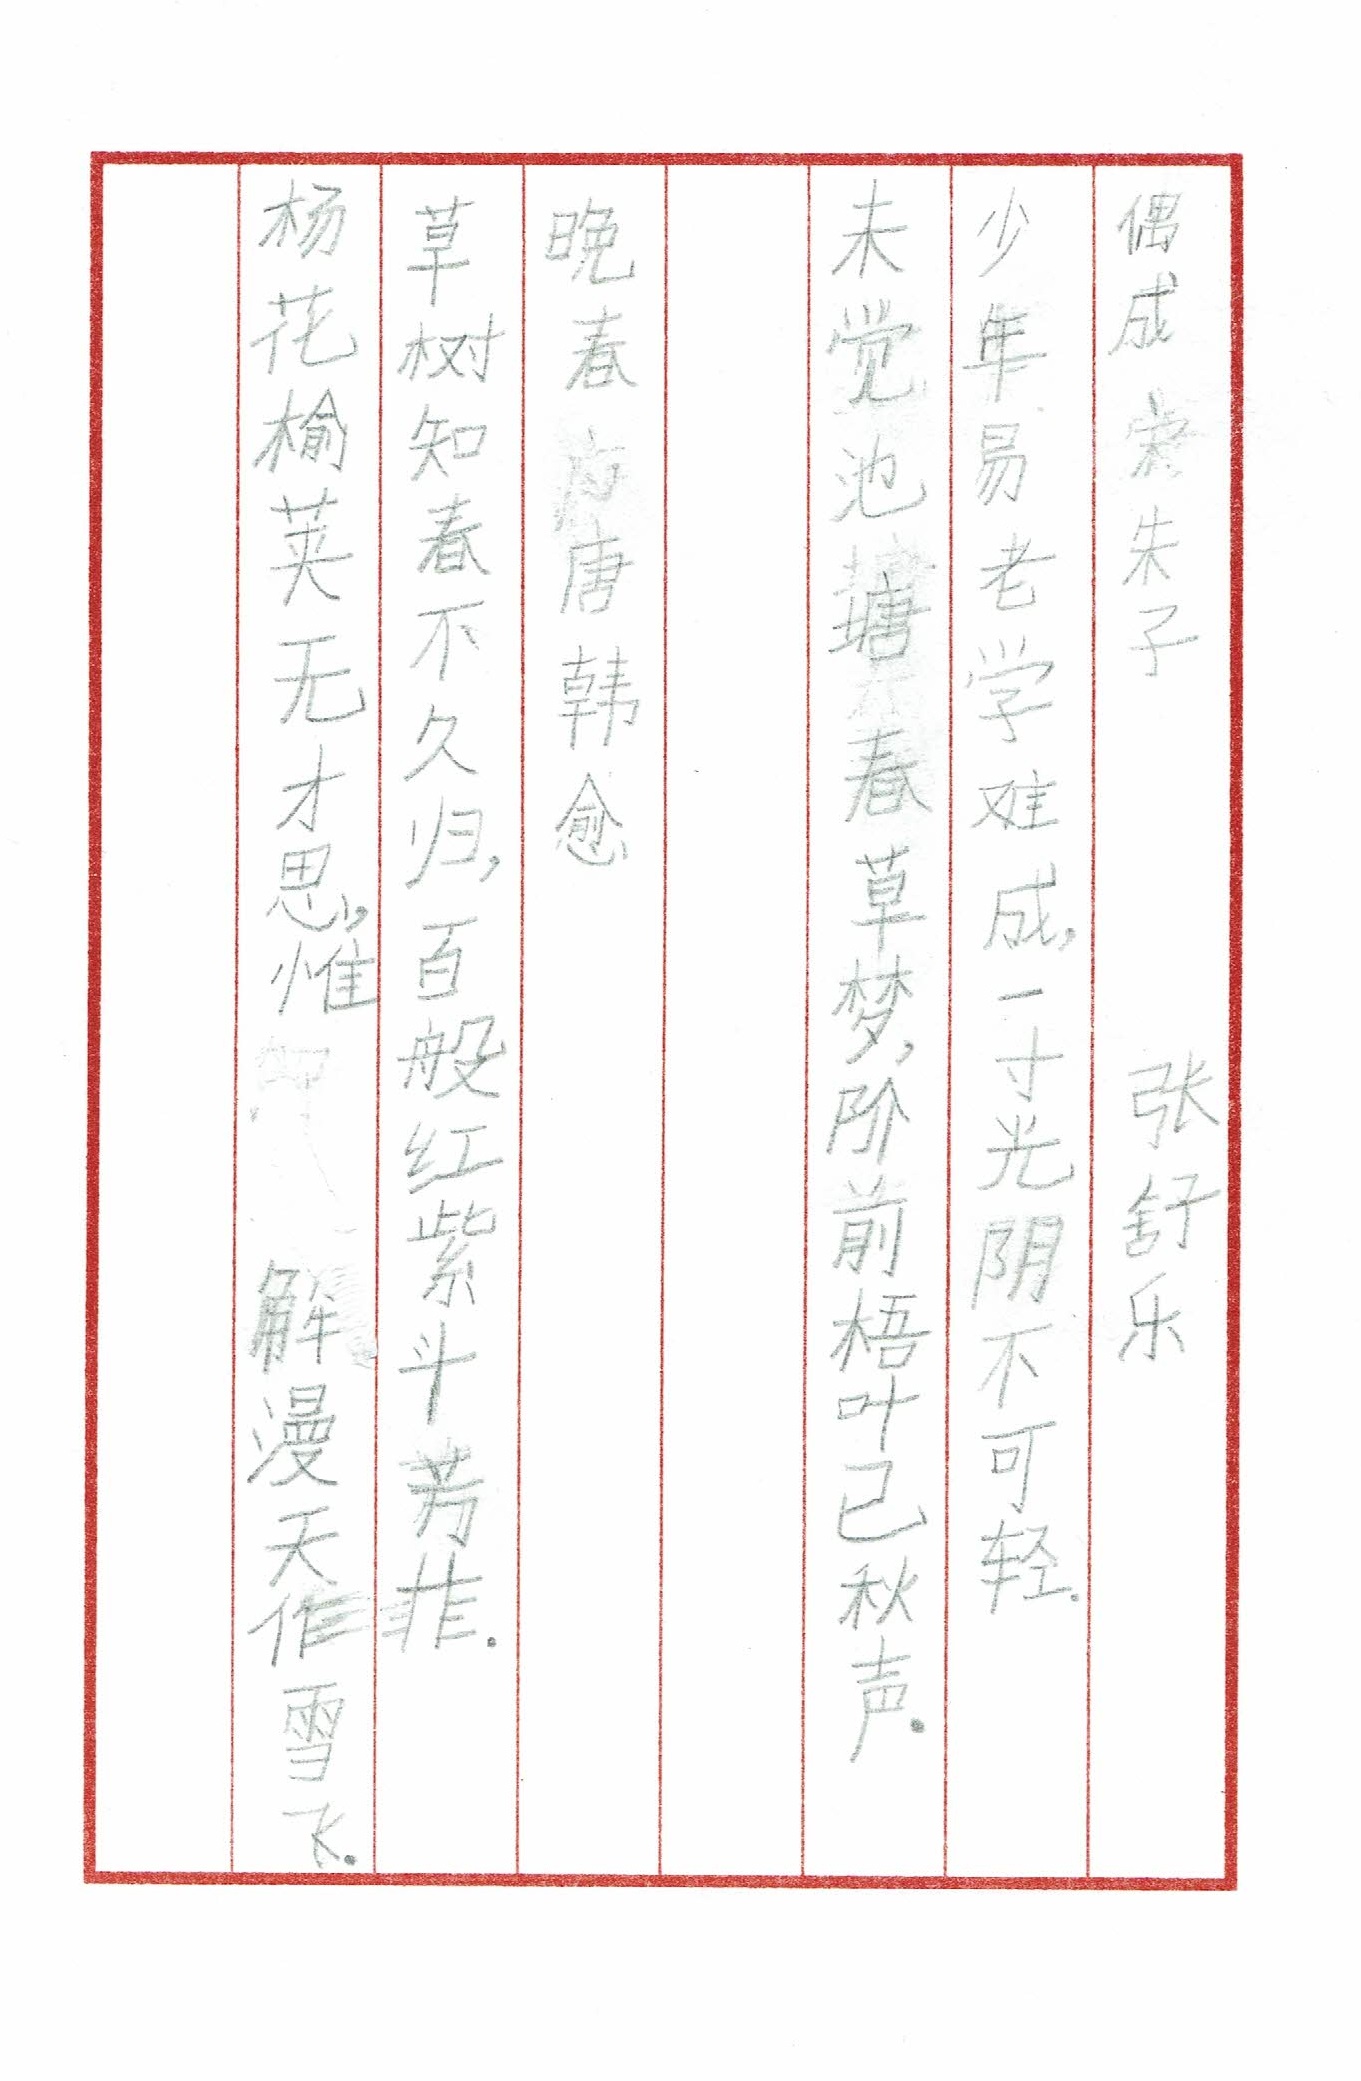 偶成 宋朱子 张舒乐
少年易老学难成,一寸光阴不可轻.
未觉池塘春草梦,阶前梧叶已秋声.
晚春 唐韩愈
草树知春不久归,百般红紫斗芳菲.
杨花榆荚无才思,惟 解漫天作雪飞.